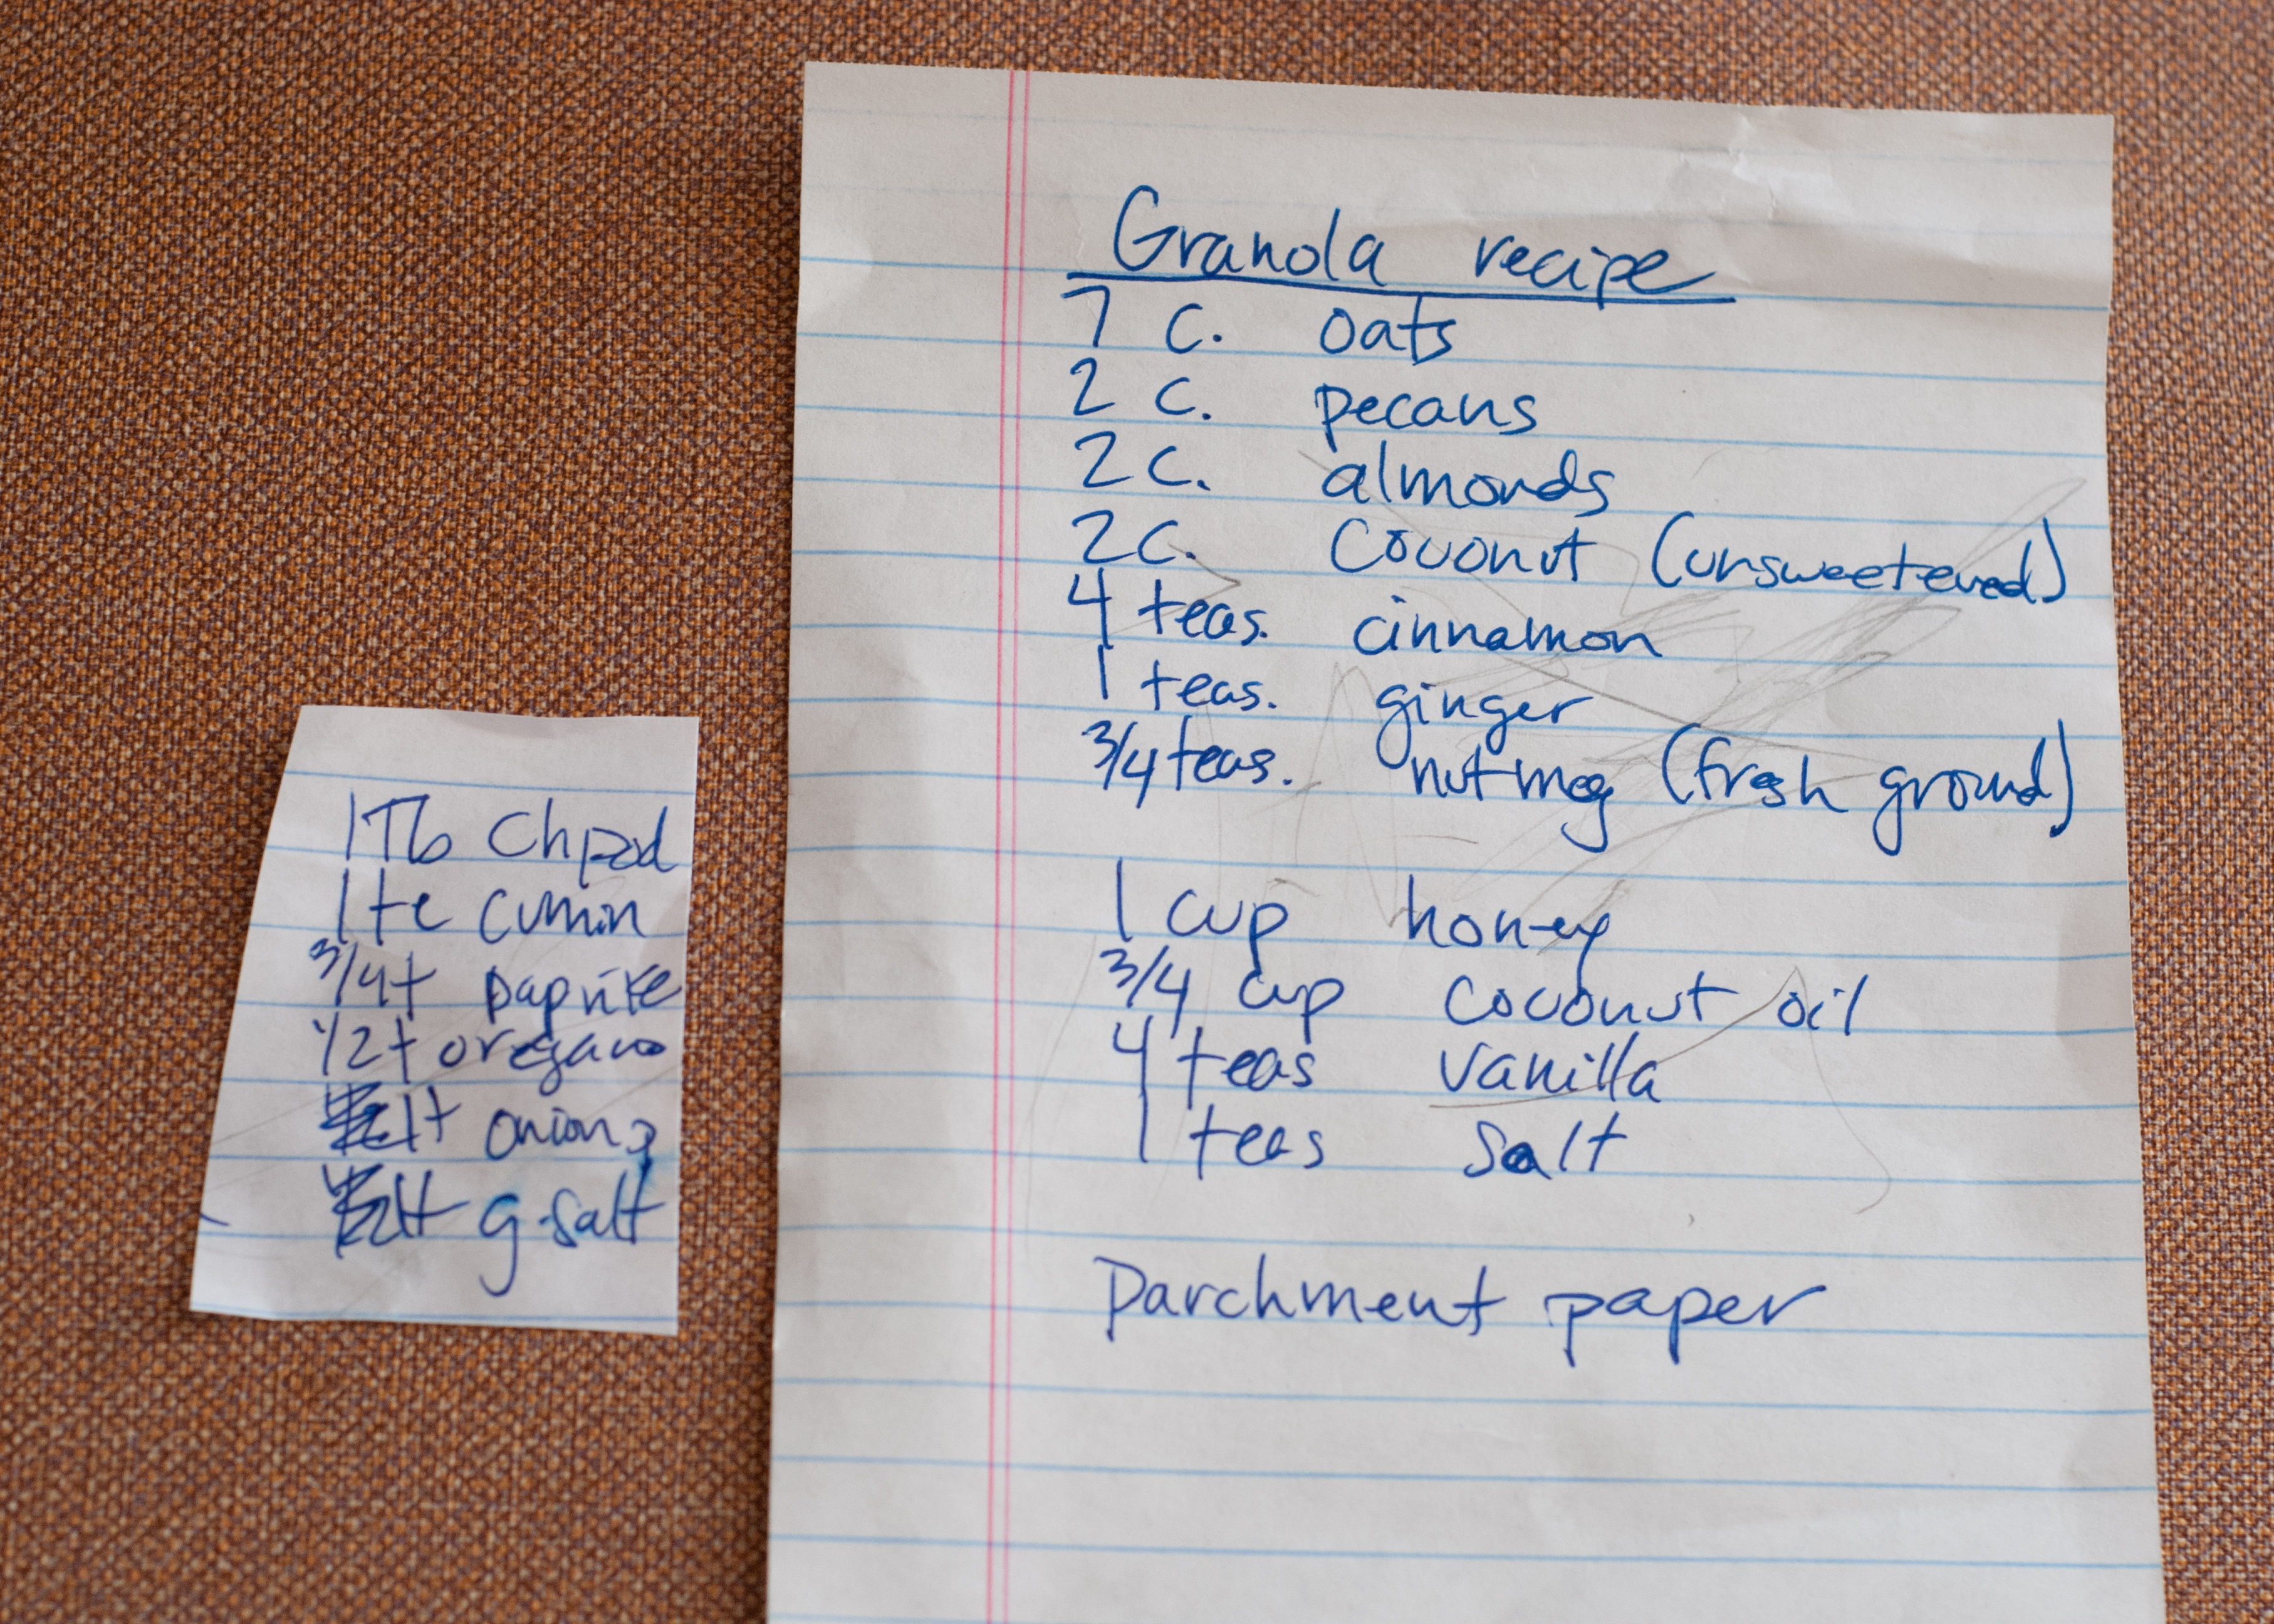 Granola recipe
7 c. oats
2 c. pecans
2 c. almonds
2 c. coconut (unsweetened)
4 teas. cinnamon
1 teas. ginger
3/4 teas. nutmeg (fresh ground)
1 cup honey
3/4 cup coconut oil
4 teas vanilla
1 teas salt
Parchment paper
1 Tb Ch pod
1 te cumin
3/4 t paprike
1/2 t oregano
1 t onion
1 t g. salt